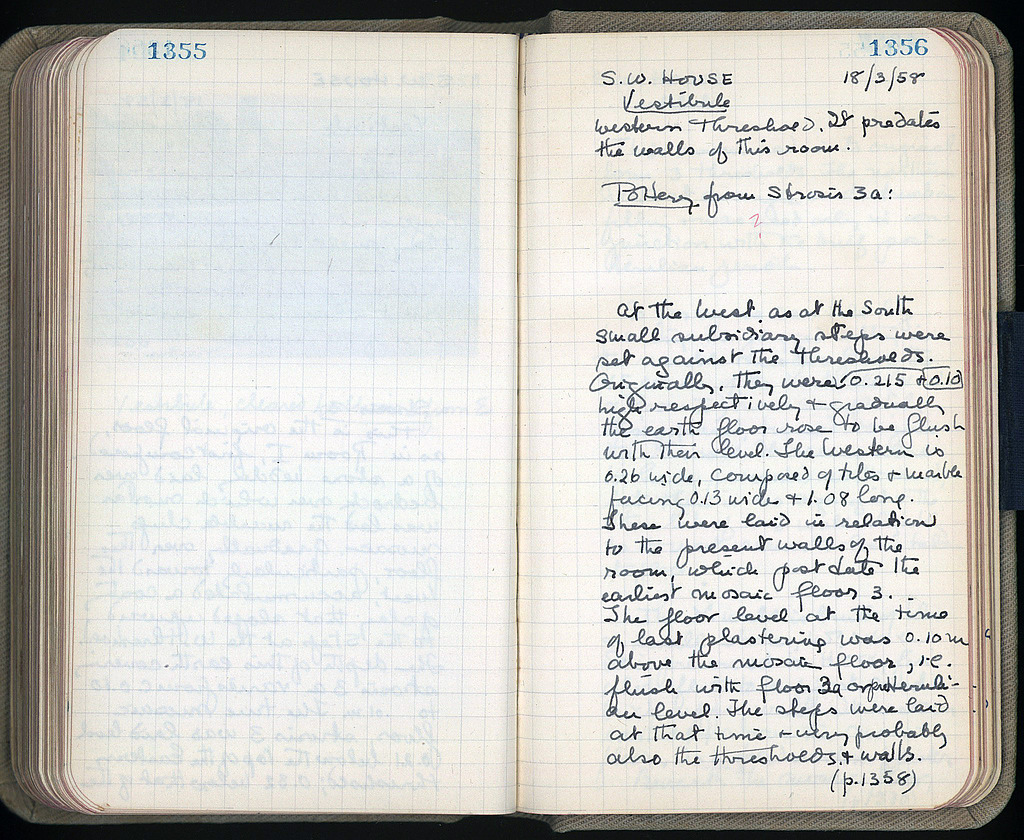 1355
1356
S.W. HOUSE 18/3/58
Vestibule
western threshold. It predates
the walls of this room.
Pottery from Strosis 3a:
?
At the West, as at the South
small subsidiary steps were
set against the thresholds.
Originally, they were 0.215 + 0.10
high respectively + gradually
the earth floor rose to be flush
with their level. The western is
0.26 wide, composed of tiles + marble
facing 0.13 wide + 1.08 long.
These were laid in relation
to the present walls of the
room, which post date the
earliest mosaic floor 3.
The floor level at the time
of last plastering was 0.10 m
above the mosaic floor, i.e.
flush with floor 3a or
level. The steps were laid
at that time + very probably
also the thresholds + walls.
(p.1358)